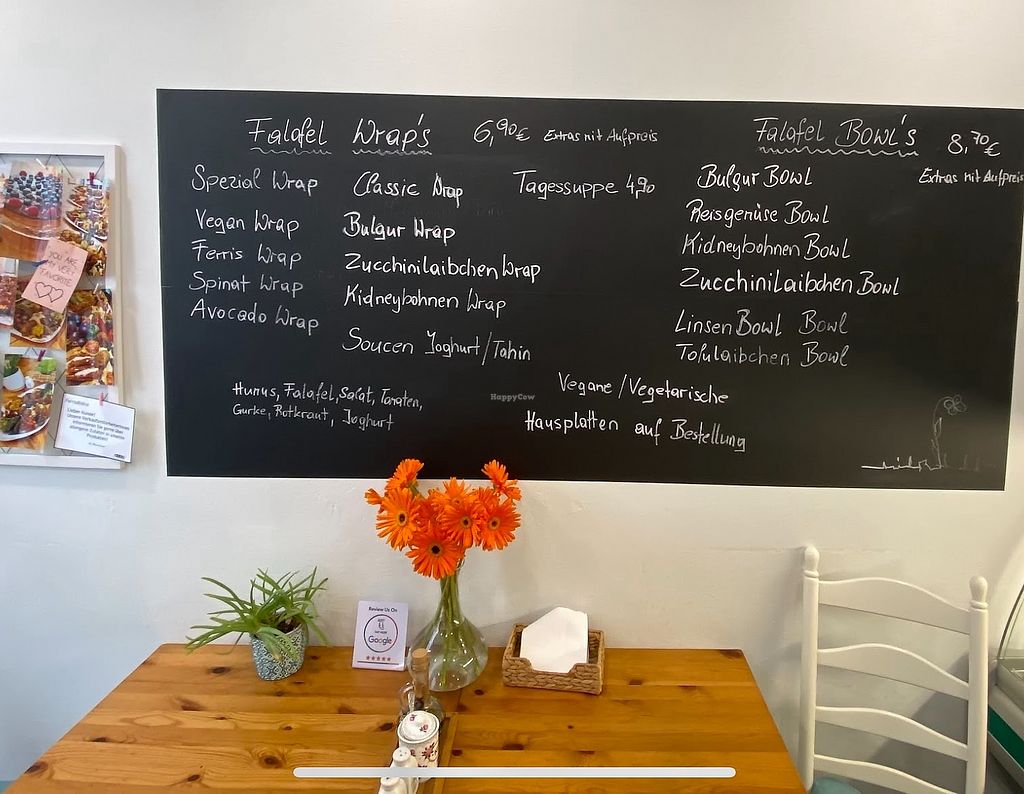 Falafel Wrap's 6,90€ Extras mit Aufpreis
Spezial Wrap
Vegan Wrap
Ferris Wrap
Spinat Wrap
Avocado Wrap
Classic Wrap
Bulgur Wrap
Zucchinilaibchen Wrap
Kidneybohnen Wrap
Soucen Joghurt/Tahin
Tagessuppe 4,90
Humus, Falafel, Salat, Tomaten,
Gurke, Rotkraut, Joghurt
Falafel Bowl's 8,70€
Extras mit Aufpreis
Bulgur Bowl
Reisgemüse Bowl
Kidneybohnen Bowl
Zucchinilaibchen Bowl
Linsen Bowl Bowl
Tofulaibchen Bowl
Vegane/Vegetarische
Hausplatten auf Bestellung
HappyCow
YOU ARE
MY VERY
FAVORITE
Lieber Kunde!
Review Us On
Google